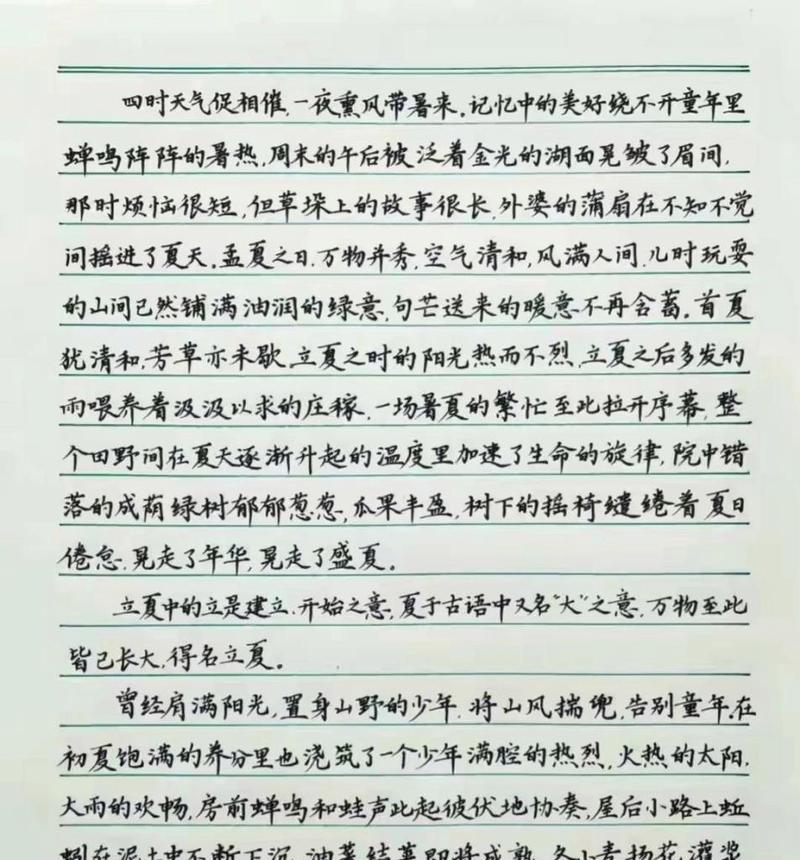 四时天气促相催,一夜熏风带暑来。记忆中的美好绕不开童年里
蝉鸣阵阵的暑热,周末的午后被泛着金光的湖面晃皱了眉间,
那时烦恼很短,但草垛上的故事很长,外婆的蒲扇在不知不觉
间摇进了夏天。孟夏之日,万物并秀,空气清和,风满人间,儿时玩耍
的山间已然铺满油润的绿意,句芒送来的暖意不再含蓄。首夏
犹清和,芳草亦未歇。立夏之时的阳光热而不烈,立夏之后多发的
雨喂养着汲汲以求的庄稼,一场暑夏的繁忙至此拉开序幕,整
个田野间在夏天逐渐升起的温度里加速了生命的旋律,院中错
落的成荫绿树郁郁葱葱,瓜果丰盈,树下的摇椅缱绻着夏日
倦怠,晃走了年华,晃走了盛夏。
立夏中的立是建立、开始之意,夏于古语中又名“大”之意,万物至此
皆已长大,得名立夏。
曾经肩满阳光,置身山野的少年,将山风揣兜,告别童年,在
初夏饱满的养分里也浇筑了一个少年满腔的热烈,火热的太阳,
大雨的欢畅,房前蝉鸣和蛙声此起彼伏地协奏,屋后小路上蚯
蚓在泥土中不断下沉,油菜结荚即将成熟,冬小麦扬花灌浆